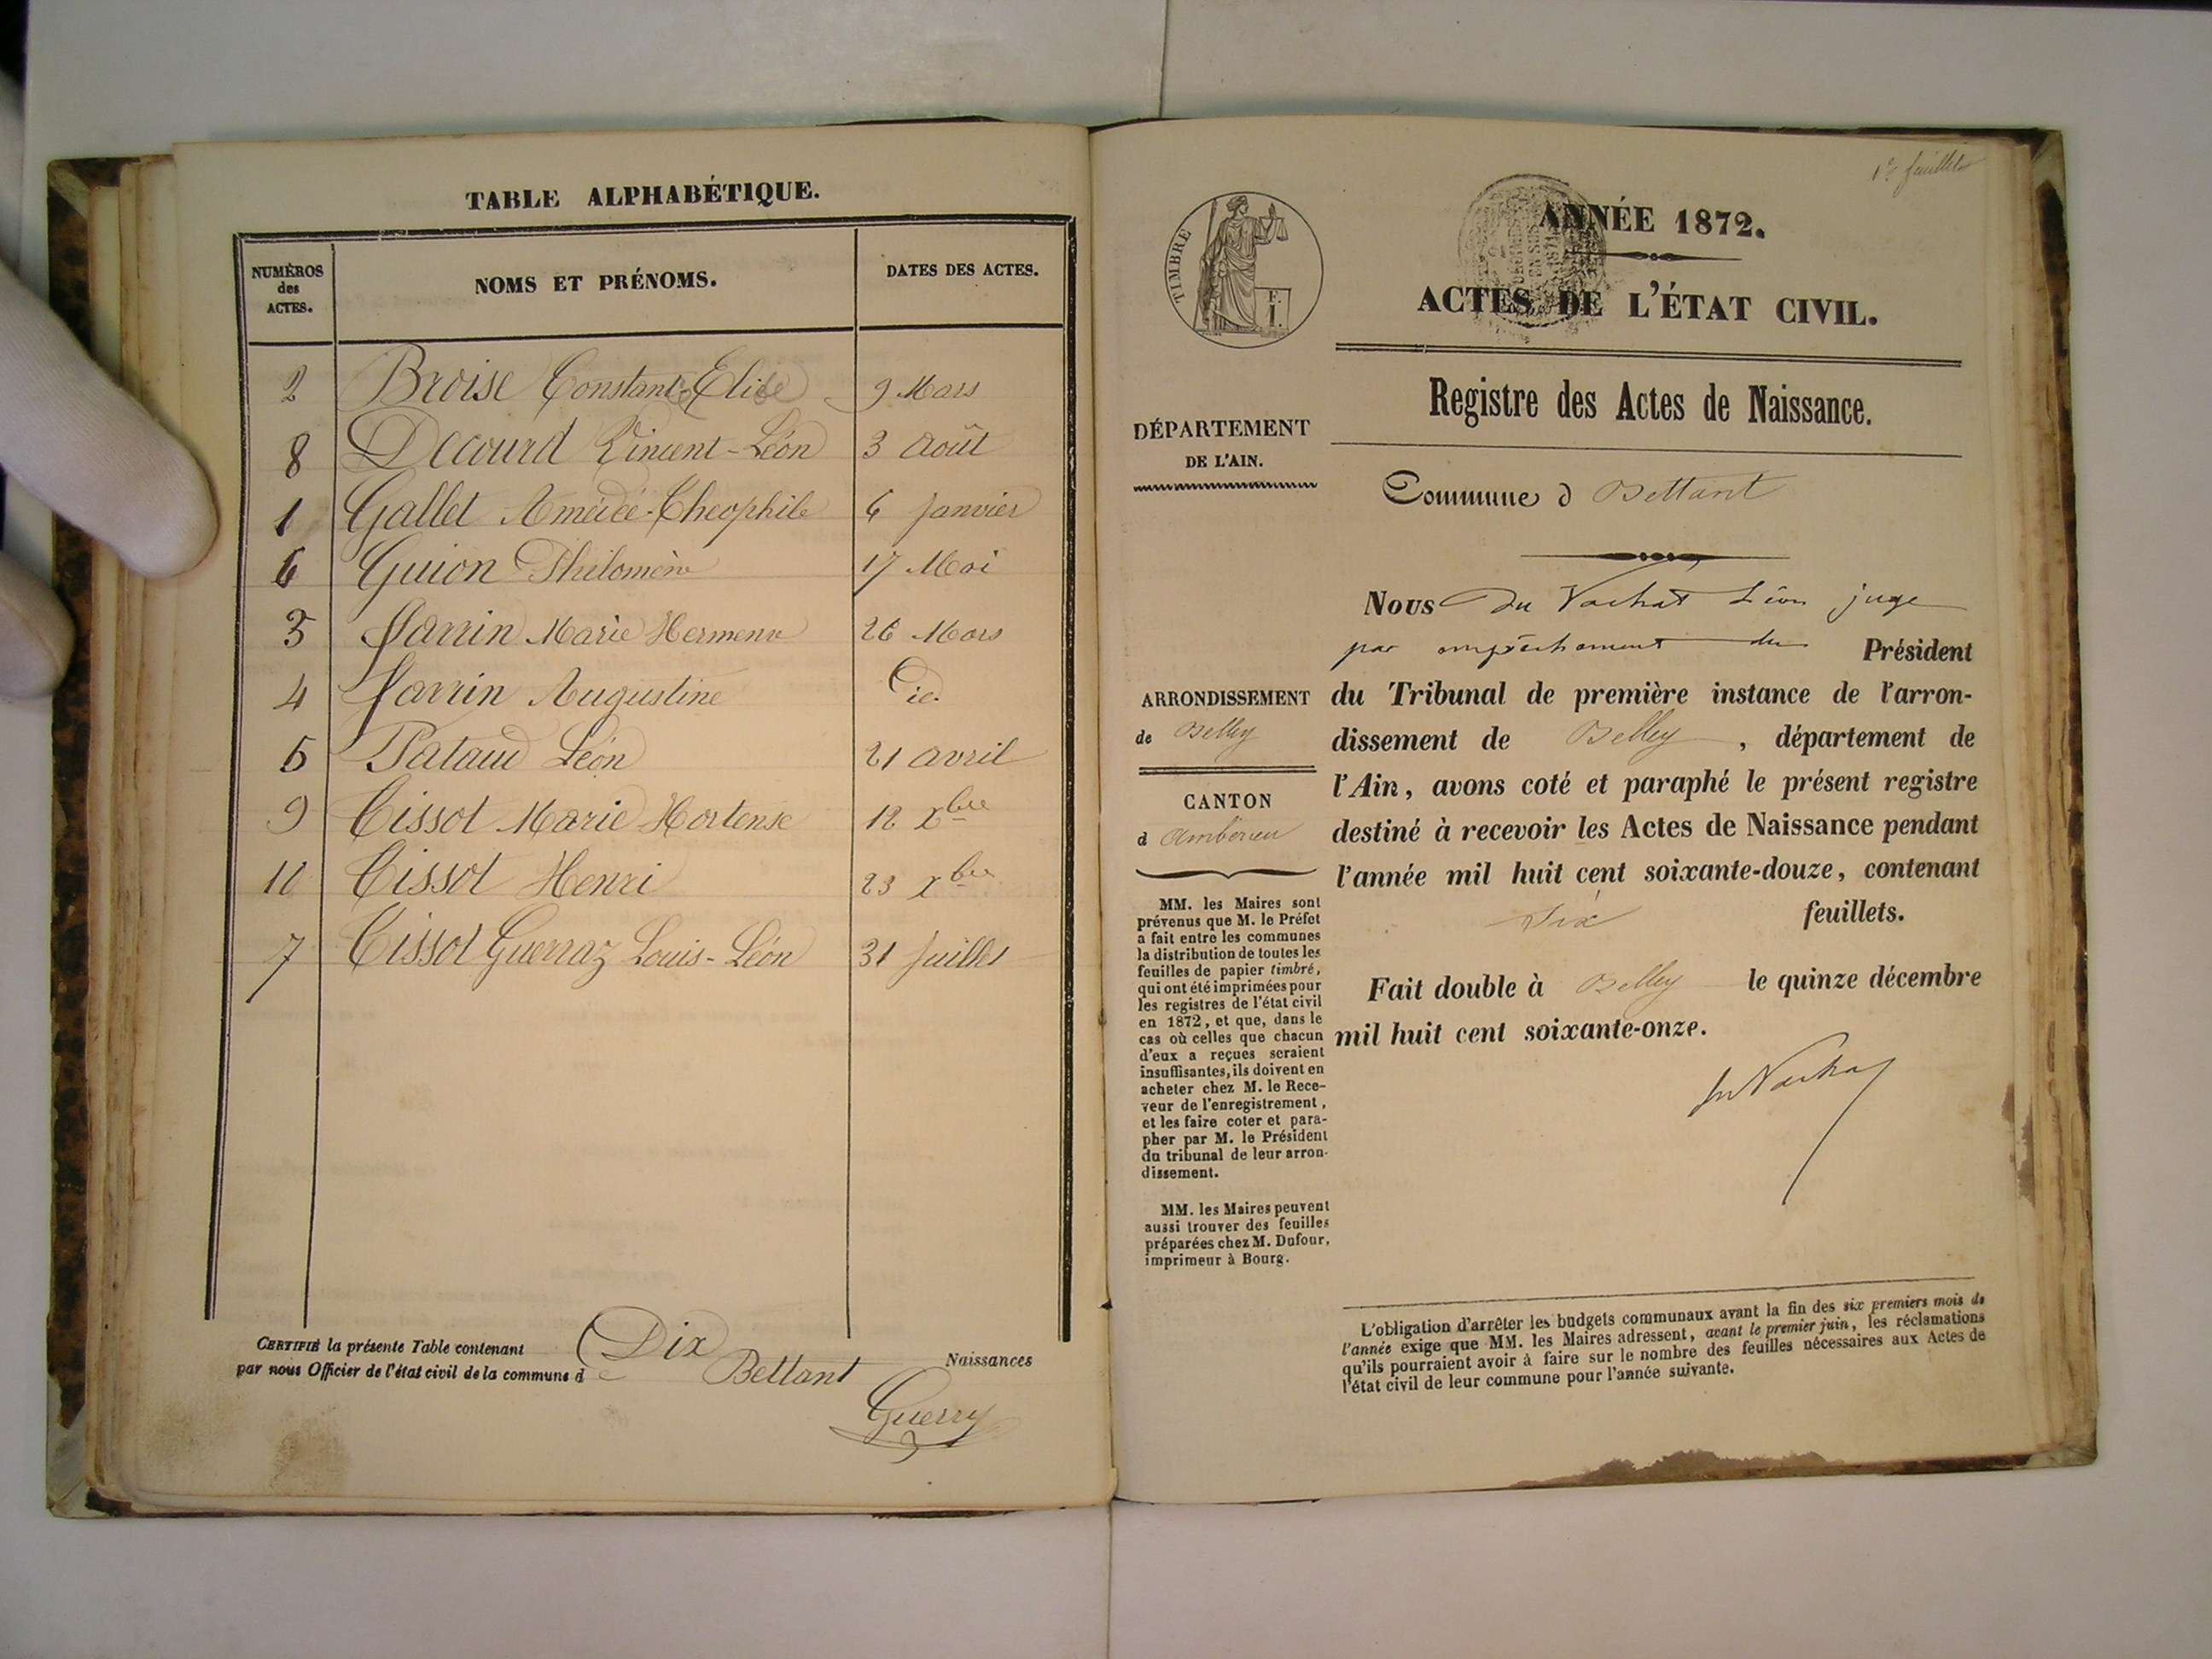 TABLE ALPHABÉTIQUE.
NUMÉROS des ACTES. NOMS ET PRÉNOMS. DATES DES ACTES.
2 Broise Constant Elise 9 Mars
8 Decourd Vincent-Léon 3 Août
1 Gallet Amédé-Theophile 6 Janvier
6 Guion Philomène 17 Mai
3 Jarrin Marie Hermene 26 Mars
4 Jarrin Augustine id.
5 Pataud Léon 21 avril
9 Tissot Marie Hortense 12 Xbre
10 Tissot Henri 23 Xbre
7 Tissot Guerraz Louis-Léon 31 Juillet
CERTIFIÉ la présente Table contenant Dix Naissances
par nous Officier de l'état civil de la commune de Bettant
Guerry
1er feuillet
TIMBRE
ANNÉE 1872.
ACTES DE L'ÉTAT CIVIL.
Registre des Actes de Naissance.
DÉPARTEMENT
DE L'AIN.
Commune d Bettant
ARRONDISSEMENT
de Belley
CANTON
d Ambérieu
MM. les Maires sont
prévenus que M. le Préfet
a fait entre les communes
la distribution de toutes les
feuilles de papier timbré,
qui ont été imprimées pour
les registres de l'état civil
en 1872, et que, dans le
cas où celles que chacun
d'eux a reçues seraient
insuffisantes, ils doivent en
acheter chez M. le Rece-
veur de l'enregistrement,
et les faire coter et para-
pher par M. le Président
du tribunal de leur arron-
dissement.
MM. les Maires peuvent
aussi trouver des feuilles
préparées chez M. Dufour,
imprimeur à Bourg.
Nous Du Vachat Léon juge
par empêchement du Président
du Tribunal de première instance de l'arron-
dissement de Belley, département de
l'Ain, avons coté et paraphé le présent registre
destiné à recevoir les Actes de Naissance pendant
l'année mil huit cent soixante-douze, contenant
Six feuillets.
Fait double à Belley le quinze décembre
mil huit cent soixante-onze.
Du Vachat
L'obligation d'arrêter les budgets communaux avant la fin des six premiers mois de
l'année exige que MM. les Maires adressent, avant le premier juin, les réclamations
qu'ils pourraient avoir à faire sur le nombre des feuilles nécessaires aux Actes de
l'état civil de leur commune pour l'année suivante.